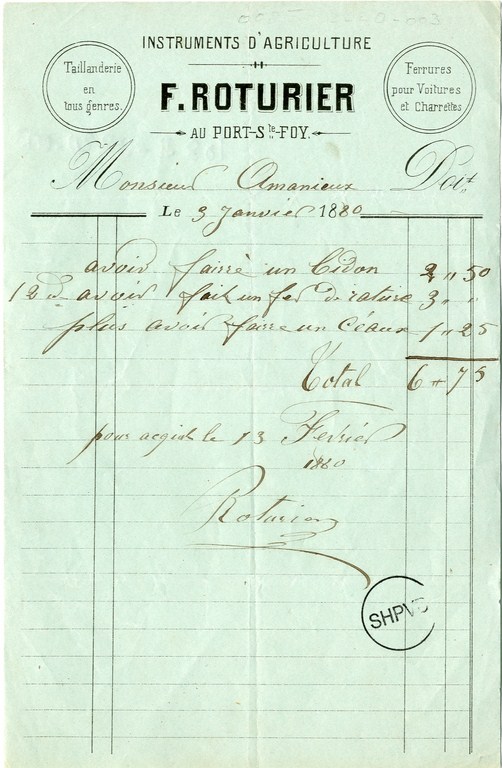 INSTRUMENTS D'AGRICULTURE
Taillanderie
en
tous genres.
F. ROTURIER
Ferrures
pour Voitures
et Charrettes
AU PORT-Ste-FOY.
Monsieur Amanieux Doit
Le 3 Janvier 1880
avoir fairre un bidon 2 " 50
12 d avoir fait un fer de rature 3 " "
plus avoir faire un céaux 1 " 25
Total 6 " 75
pour aquit le 13 Fevrier
1880
Roturier
SHPVF